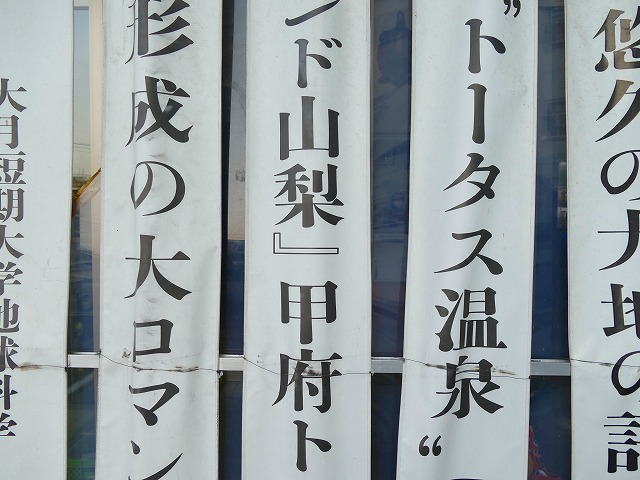 悠久の大地の
”トータス温泉“
ンド山梨』甲府ト
形成の大ロマン
大月短期大学地球科学